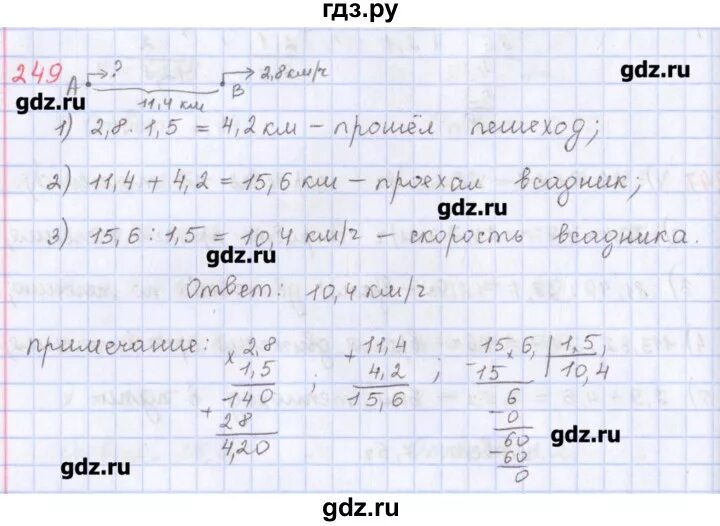 гдз.ру
249 А ? 2,8 км/ч gdz.ru
gdz.ru 11,4 км В
1) 2,8 · 1,5 = 4,2 км – прошёл пешеход;
2) 11,4 + 4,2 = 15,6 км – проехал всадник;
gdz.ru
3) 15,6 : 1,5 = 10,4 км/ч – скорость всадника.
gdz.ru
Ответ: 10,4 км/ч
примечание: × 2,8 + 11,4 15,6, | 1,5,
1,5 ; 4,2 ; - 15 10,4
140 15,6 6
+ 28 - 0
4,20 60 gdz.ru
gdz.ru - 60
0
gdz.ru